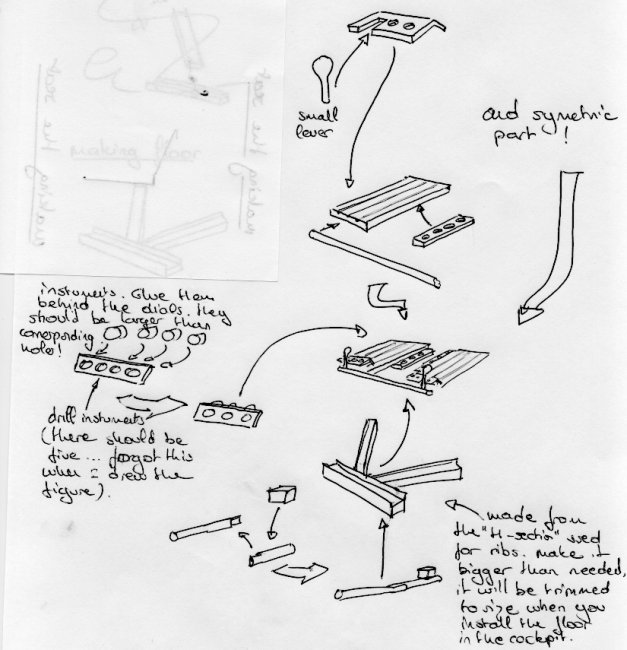 small
lever
and symetric
part !
making floor
making the seat
making the seat
instruments. Glue them
behind the dials. they
should be larger than
corresponding
holes!
drill instruments
(there should be
five ... forgot this
when I drew the
figure).
made from
the "H-section" used
for ribs. make it
bigger than needed,
it will be trimmed
to size when you
install the floor
in the cockpit.